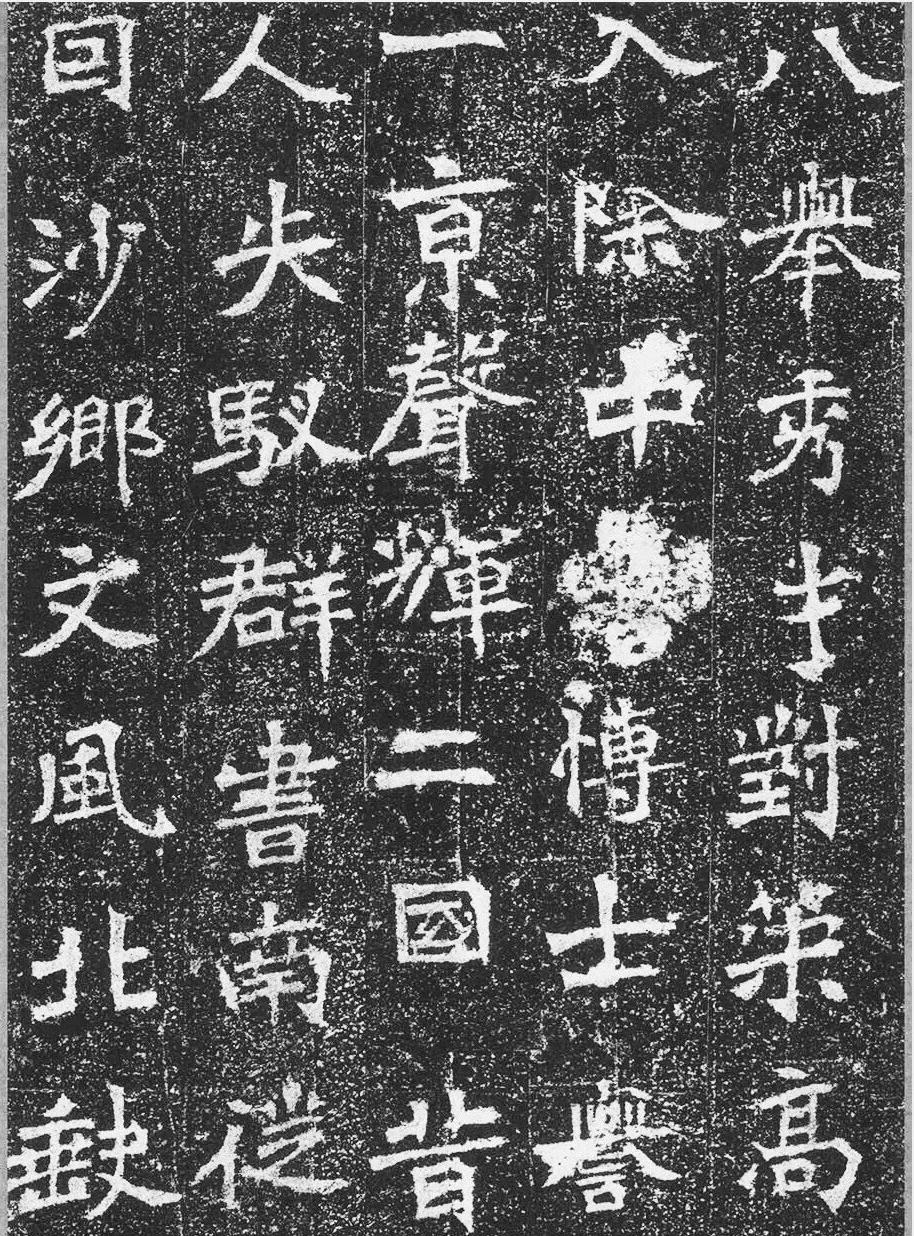 八舉秀才對策高
入除中博士譽
一京聲輝二國昔
人失馭群書南徙
囙沙鄉文風北缺